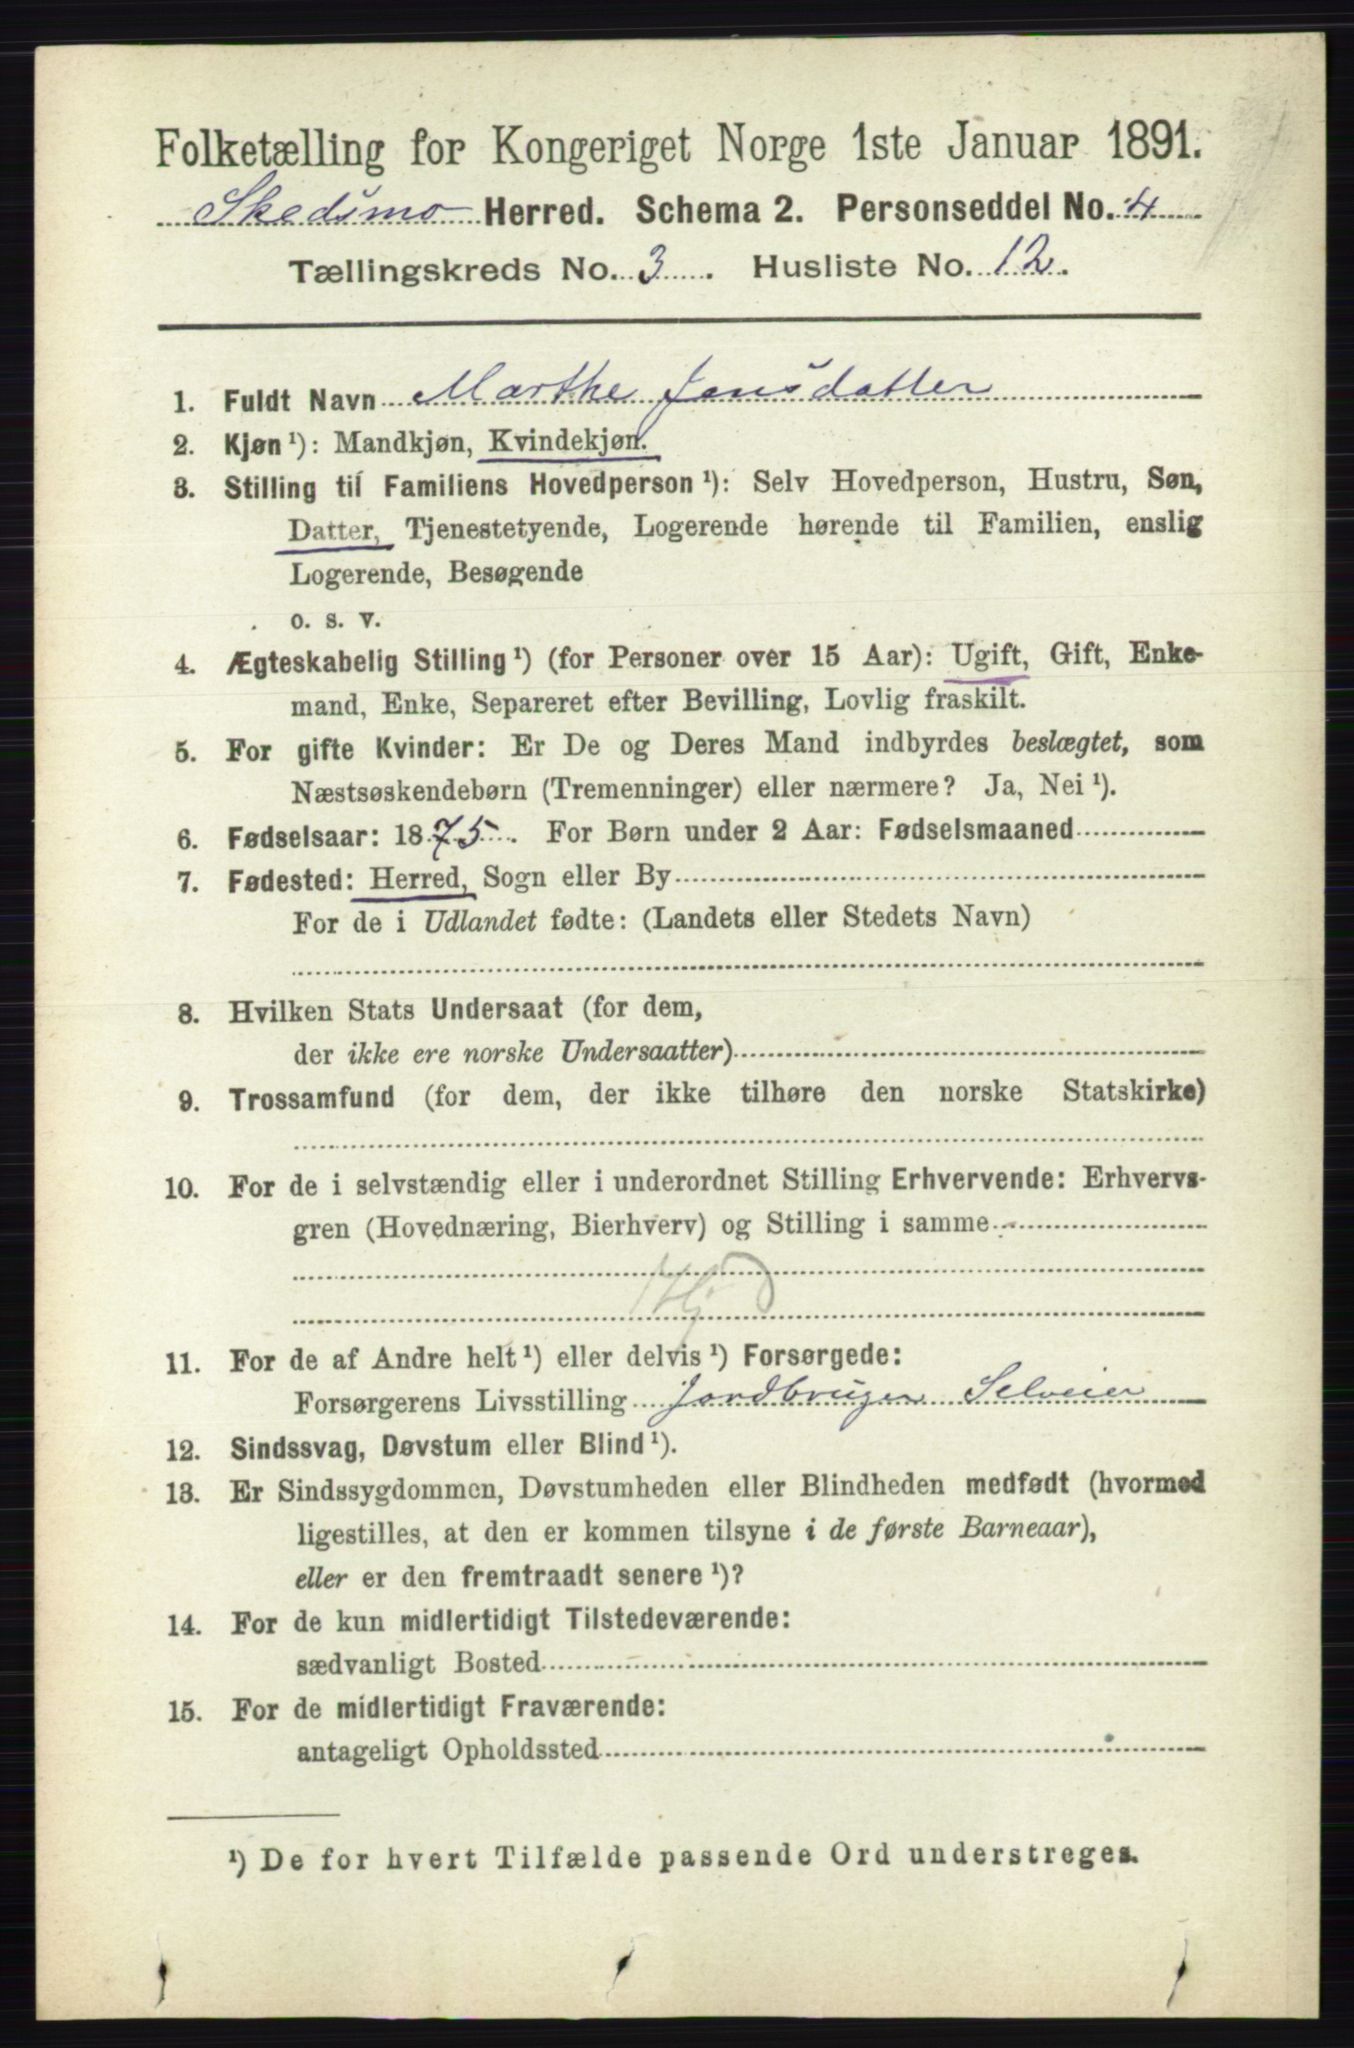 Folketælling for Kongeriget Norge 1ste Januar 1891.
Skedsmo Herred. Schema 2. Personseddel No. 4
Tællingskreds No. 3. Husliste No. 12.
1. Fuldt Navn Marthe Jensdatter
2. Kjøn ¹): Mandkjøn, Kvindekjøn.
3. Stilling til Familiens Hovedperson ¹): Selv Hovedperson, Hustru, Søn,
Datter, Tjenestetyende, Logerende hørende til Familien, enslig
Logerende, Besøgende
o. s. v.
4. Ægteskabelig Stilling ¹) (for Personer over 15 Aar): Ugift, Gift, Enke-
mand, Enke, Separeret efter Bevilling, Lovlig fraskilt.
5. For gifte Kvinder: Er De og Deres Mand indbyrdes beslægtet, som
Næstsøskendebørn (Tremenninger) eller nærmere? Ja, Nei ¹).
6. Fødselsaar: 1875. For Børn under 2 Aar: Fødselsmaaned
7. Fødested: Herred, Sogn eller By
For de i Udlandet fødte: (Landets eller Stedets Navn)
8. Hvilken Stats Undersaat (for dem,
der ikke ere norske Undersaatter)
9. Trossamfund (for dem, der ikke tilhøre den norske Statskirke)
10. For de i selvstændig eller i underordnet Stilling Erhvervende: Erhvervs-
gren (Hovednæring, Bierhverv) og Stilling i samme
11. For de af Andre helt ¹) eller delvis ¹) Forsørgede:
Forsørgerens Livsstilling Jordbruger Selveier
12. Sindssvag, Døvstum eller Blind ¹).
13. Er Sindssygdommen, Døvstumheden eller Blindheden medfødt (hvormed
ligestilles, at den er kommen tilsyne i de første Barneaar),
eller er den fremtraadt senere ¹)?
14. For de kun midlertidigt Tilstedeværende:
sædvanligt Bosted
15. For de midlertidigt Fraværende:
antageligt Opholdssted
¹) De for hvert Tilfælde passende Ord understreges.